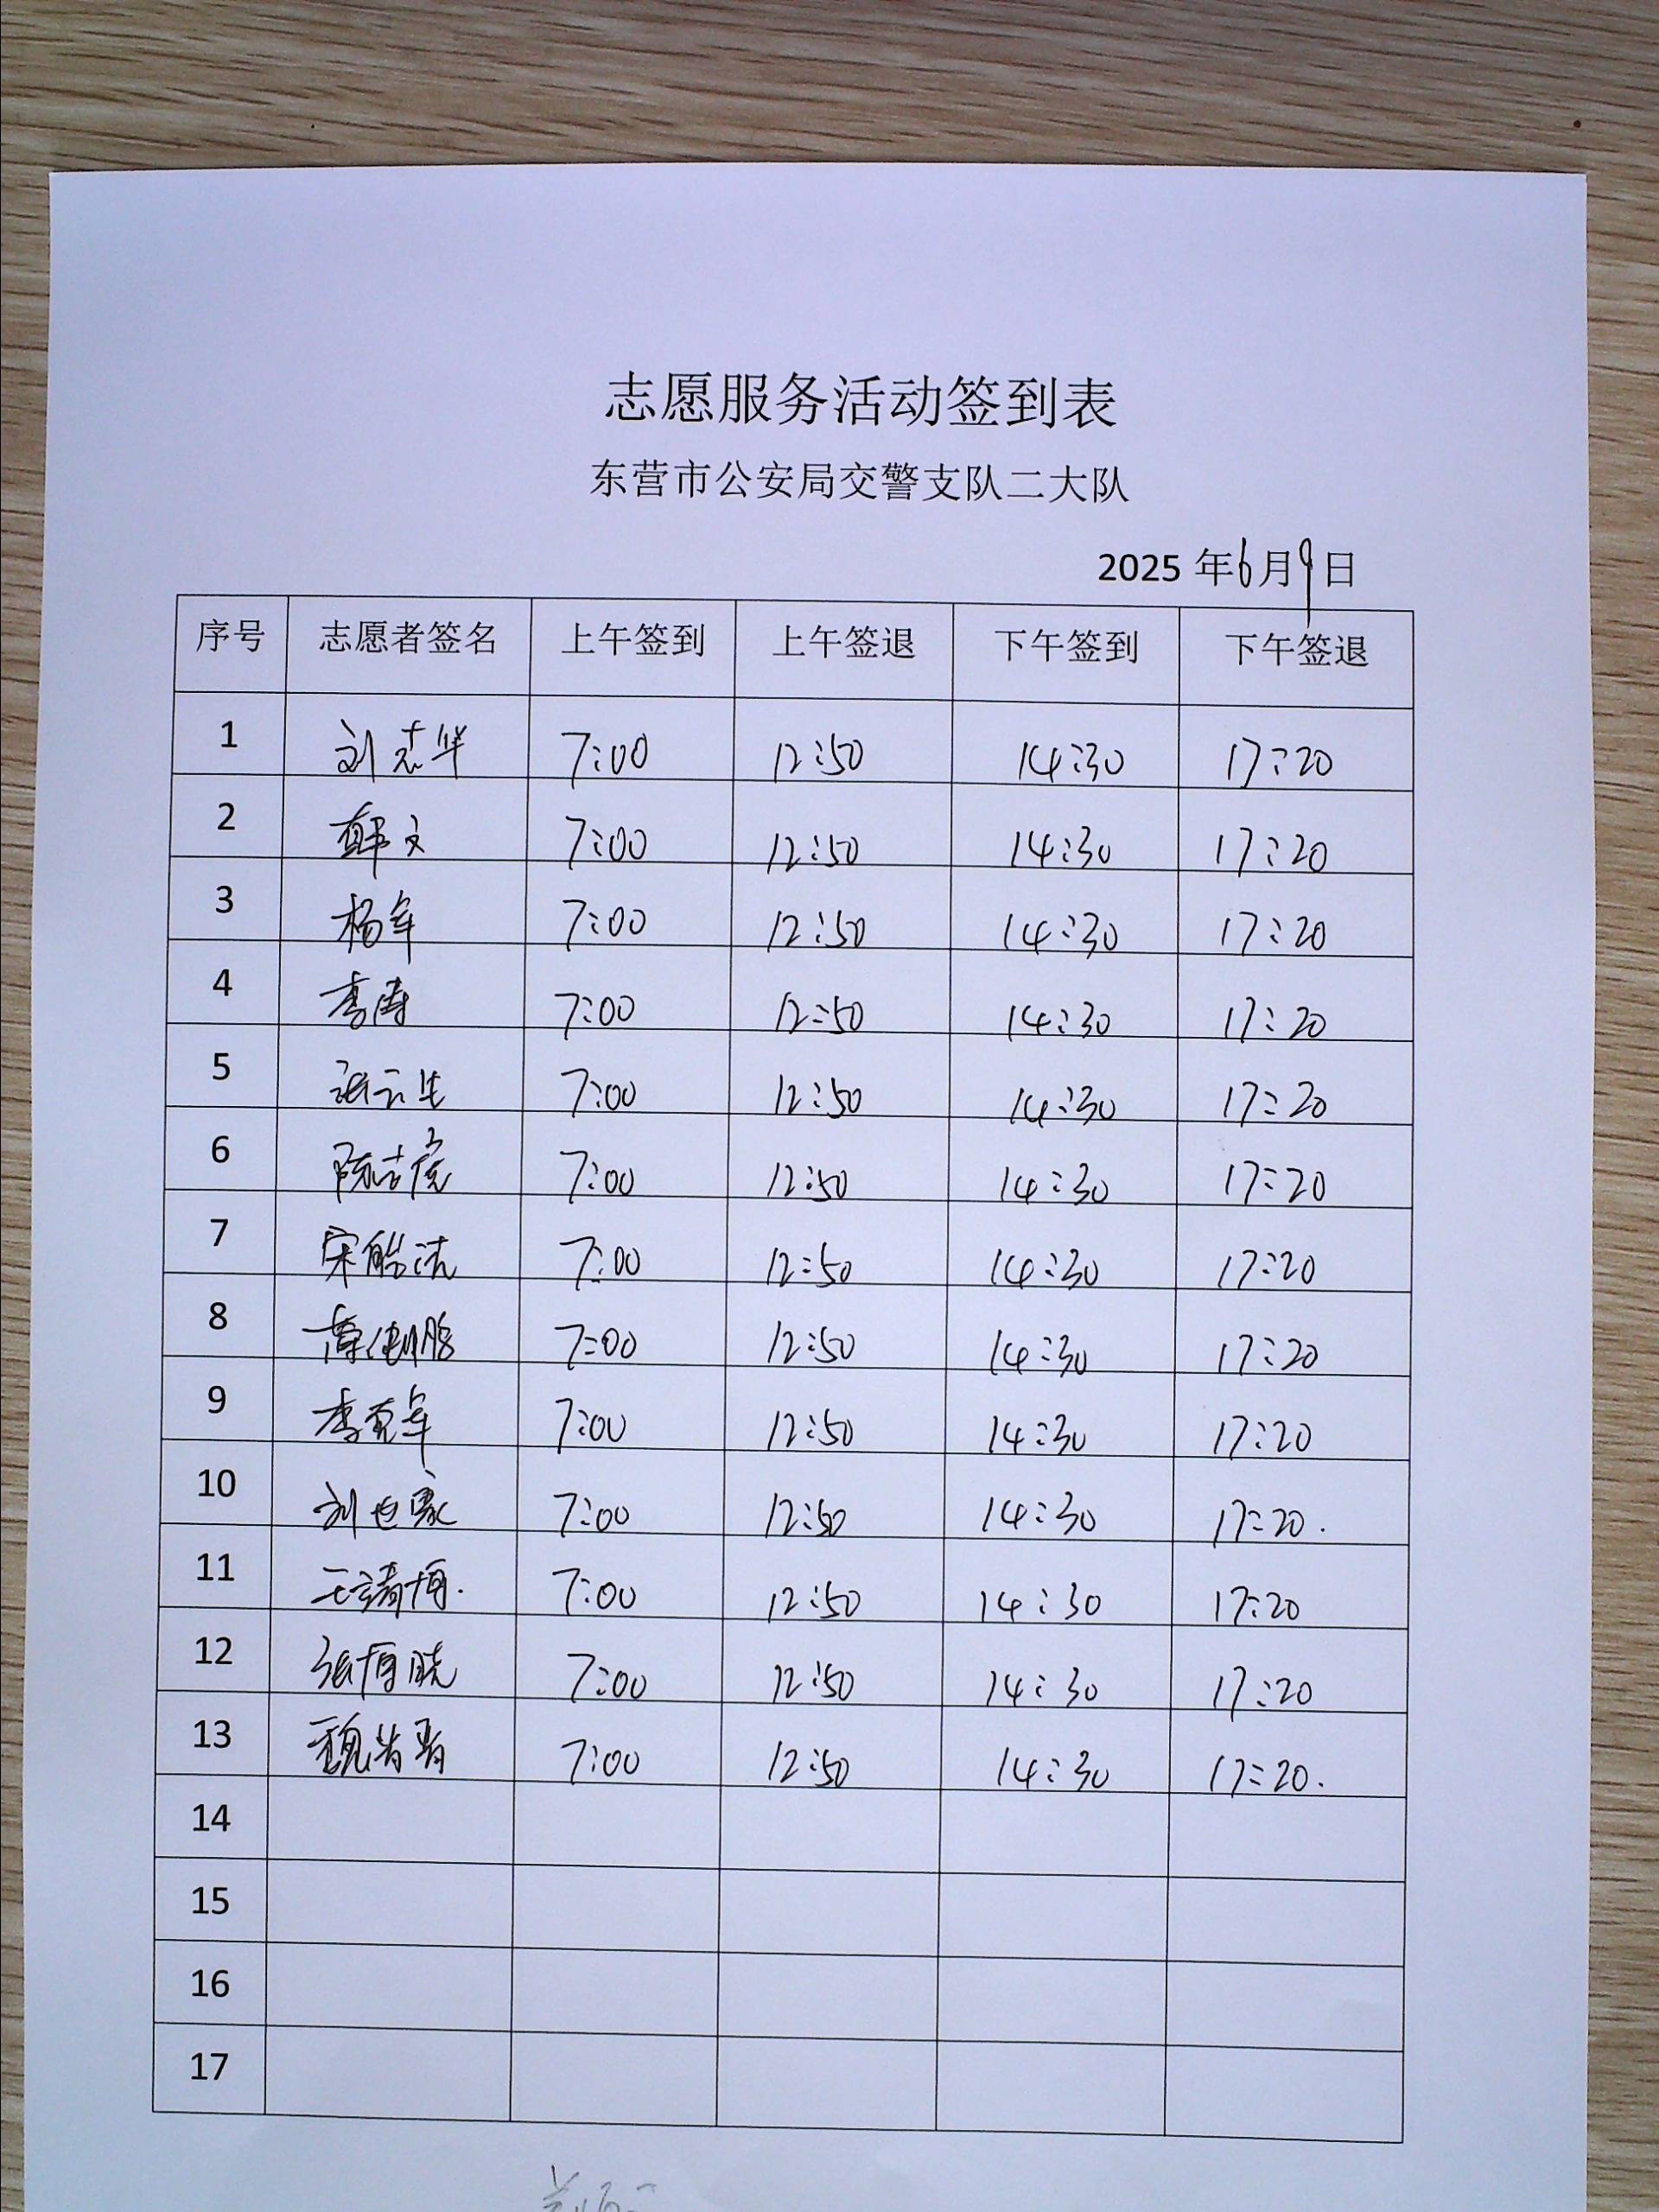 志愿服务活动签到表
东营市公安局交警支队二大队
2025 年6月9日
序号 志愿者签名 上午签到 上午签退 下午签到 下午签退
1 刘志华 7:00 12:50 14:30 17:20
2 韩文 7:00 12:50 14:30 17:20
3 杨军 7:00 12:50 14:30 17:20
4 李涛 7:00 12:50 14:30 17:20
5 张云生 7:00 12:50 14:30 17:20
6 陈吉虎 7:00 12:50 14:30 17:20
7 宋皓洁 7:00 12:50 14:30 17:20
8 7:00 12:50 14:30 17:20
9 李克军 7:00 12:50 14:30 17:20
10 刘世家 7:00 12:50 14:30 17:20.
11 王靖博. 7:00 12:50 14:30 17:20
12 张博晓 7:00 12:50 14:30 17:20
13 7:00 12:50 14:30 17:20.
14
15
16
17